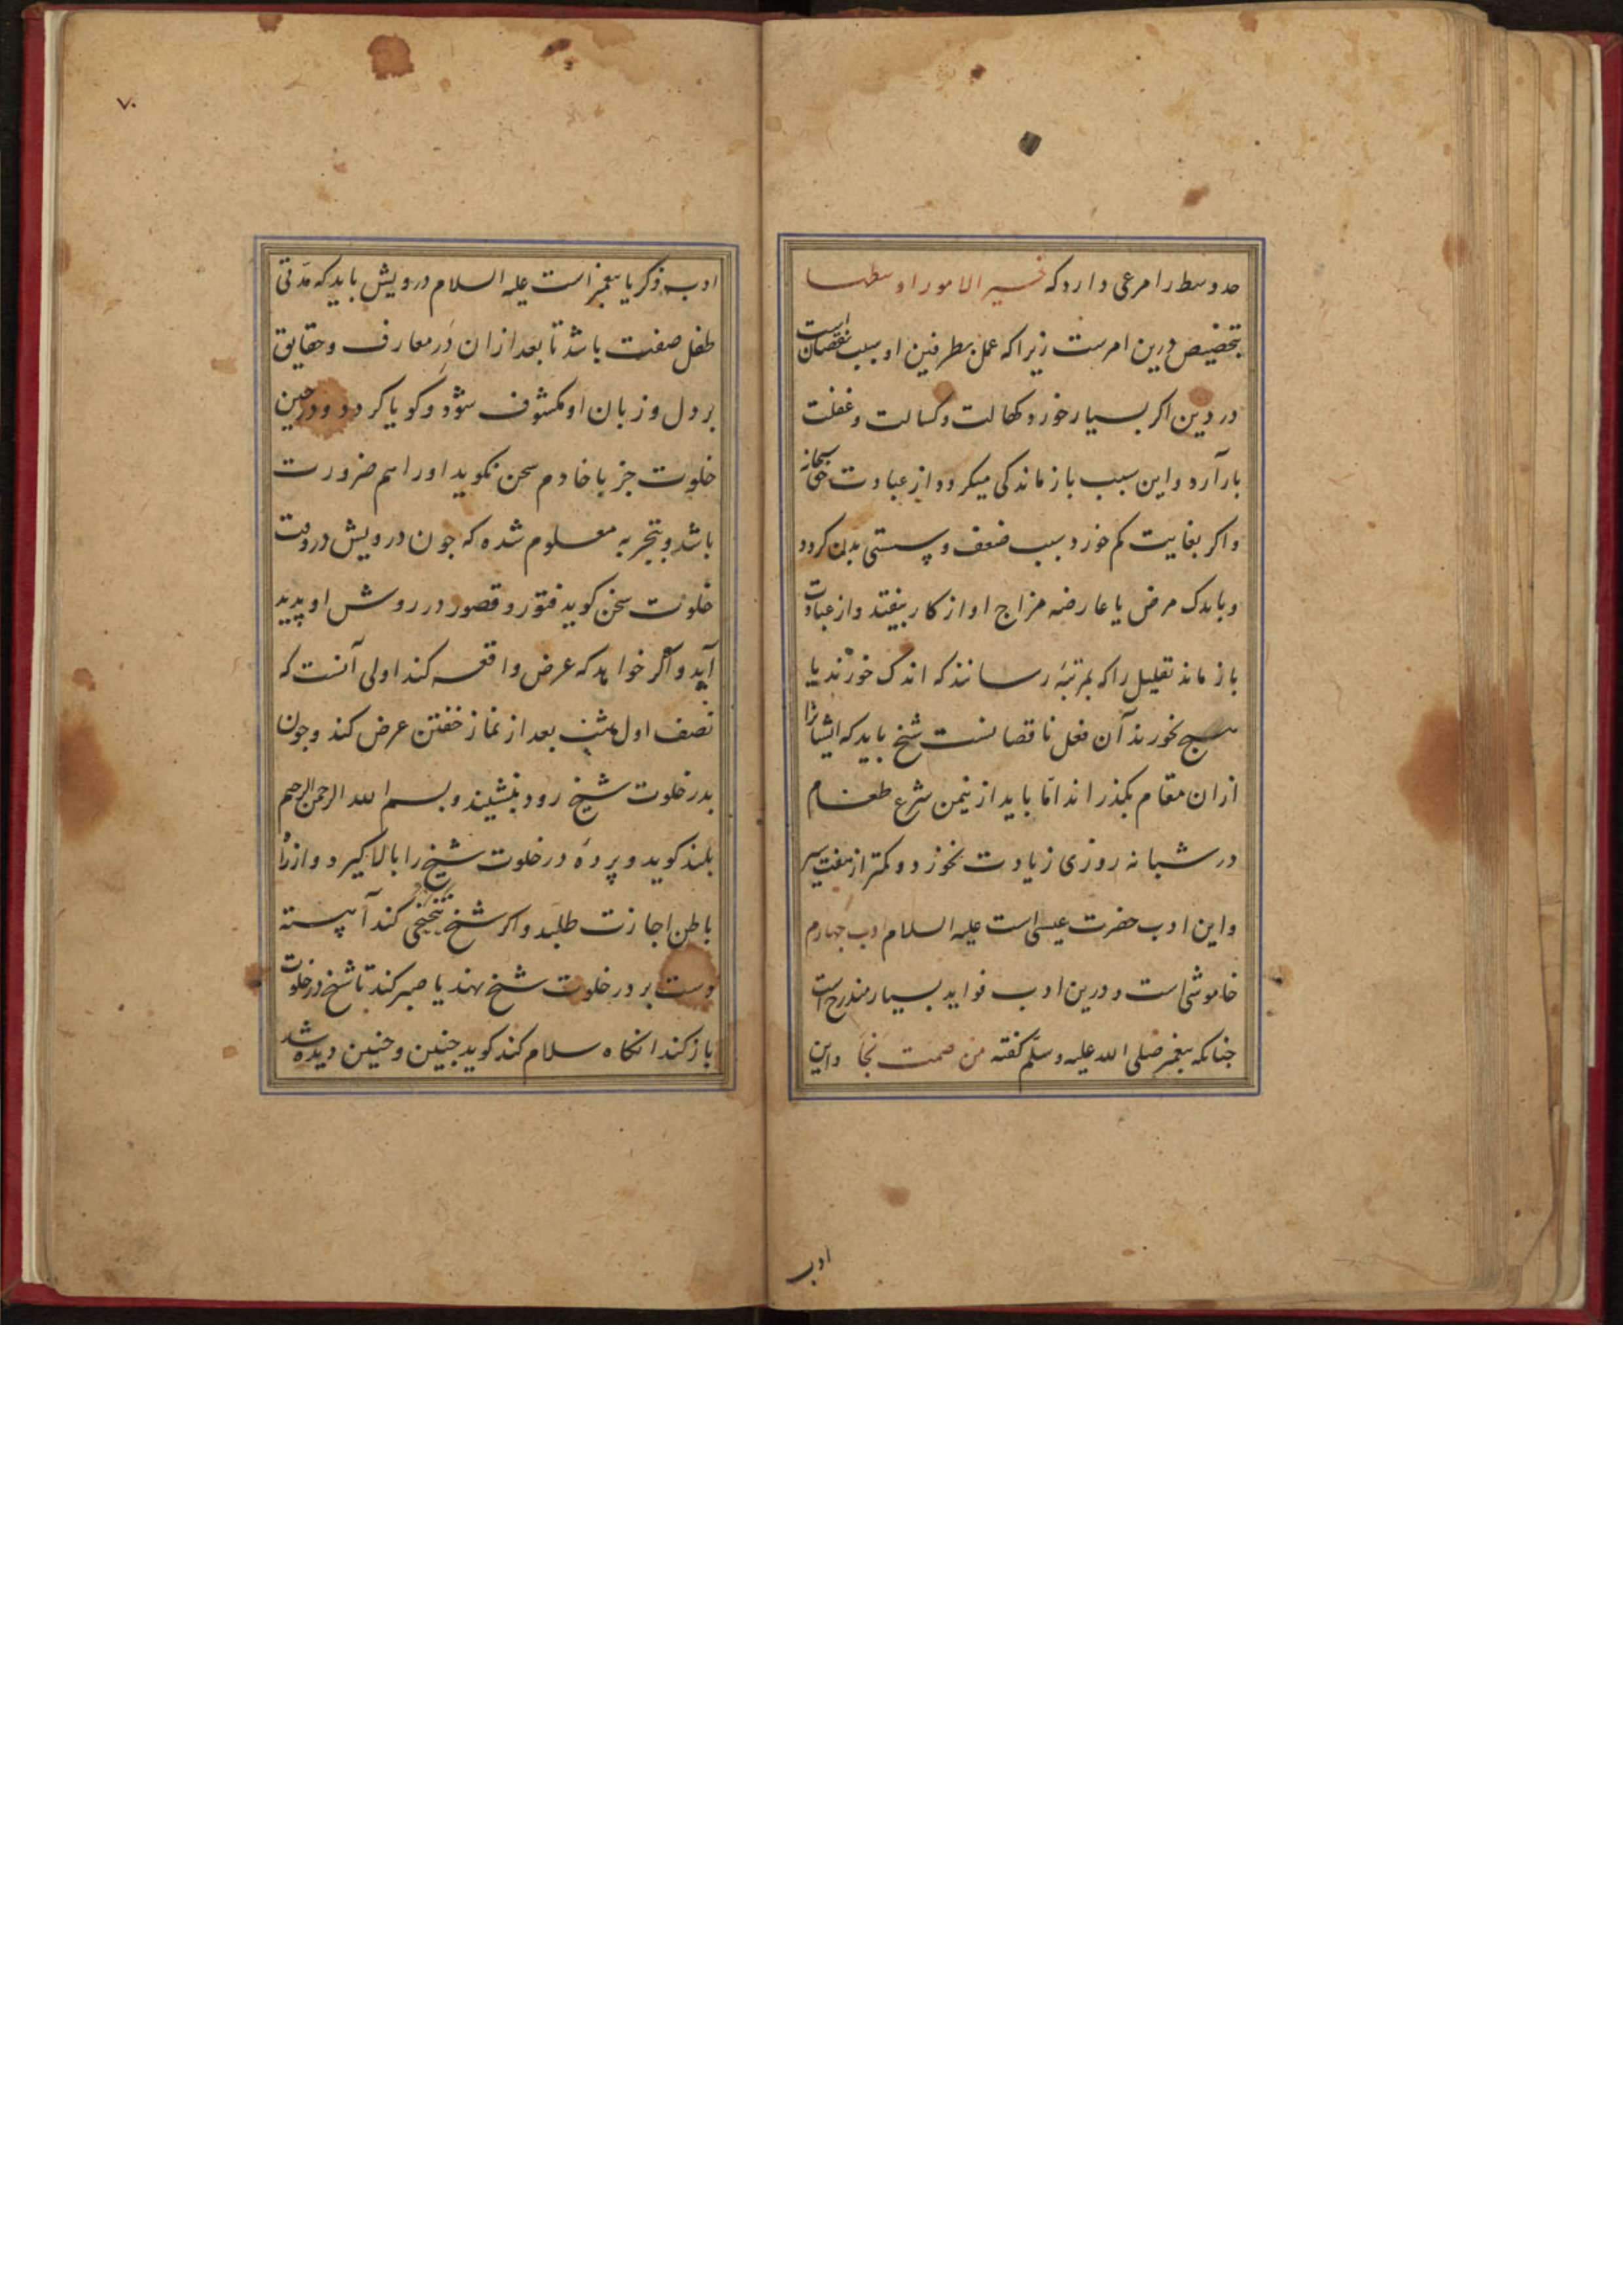 حد وسط را مرعی دارد که خیر الامور اوسطها
بتخصیص درین امرست زیرا که عمل بطرفین او سبب نقصان است
در دین اکر بسیار خورد کهالت و کسالت و غفلت
بار آرد و این سبب باز ماندکی میکردد از عبادت حق سبحانه
و اکر بغایت کم خورد سبب ضعف و سستی بدن کردد
و باندک مرض یا عارضه مزاج او از کار بیفتد و از عبادت
باز ماند تقلیل را که بمرتبه رسانند که اندک خورند یا
هیچ نخورند آن فعل ناقصانست شیخ باید که ایشانرا
ازان مقام بکذراند اما باید از نیمن شرع طعام
در شبانه روزی زیادت نخورد و کمتر از هفت سیر
و این ادب حضرت عیسی است علیه السلام ادب چهارم
خاموشی است و درین ادب فواید بسیار مندرج است
جنانکه پیغمبر صلی الله علیه و سلم کفته من صمت نجا و این
ادب
۷۰
ادب زکریا پیغمبر است علیه السلام درویش باید که مدتی
طفل صفت باشد تا بعد ازان در معارف و حقایق
بر دل و زبان او مکشوف شود و کویا کردد و در حین
خلوت جز با خادم سخن نکوید اورا هم ضرورت
باشد و بتجربه معلوم شده که جون درویش در وقت
خلوت سخن کوید فتور و قصور در روش او پدید
آید و اکر خواهد که عرض واقعه کند اولی آنست که
نصف اول شب بعد از نماز خفتن عرض کند و جون
بدر خلوت شیخ رود بنشیند و بسم الله الرحمن الرحیم
بلند کوید و پرده در خلوت شیخ را بالا کیرد و از راه
باطن اجازت طلبد و اکر شیخ تنحنحی کند آهسته
دست بر در خلوت شیخ نهد یا صبر کند تا شیخ در خلوت
باز کند انکاه سلام کند کوید جنین و جنین دیده شد